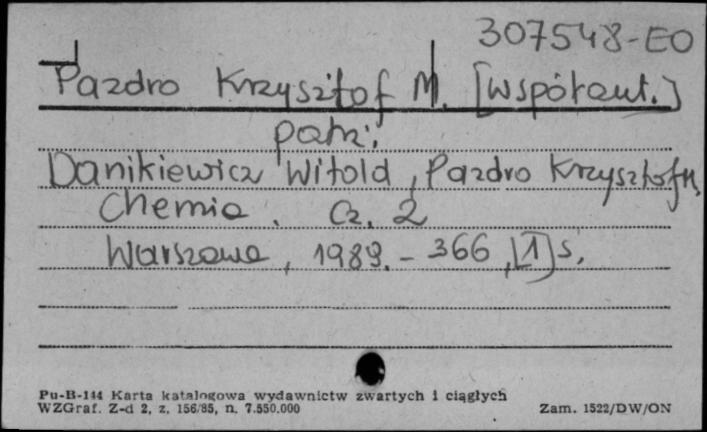 307548-EO
Pazdro Krzysztof M. [współaut.]
patrz:
Danikiewicz Witold, Pazdro Krzysztof M.
Chemia. Cz. 2
Warszawa, 1989. - 366, [1] s.
Pu-B-144 Karta katalogowa wydawnictw zwartych i ciągłych
WZGraf. Z-d 2, z. 156/85, n. 7.550.000 Zam. 1522/DW/ON